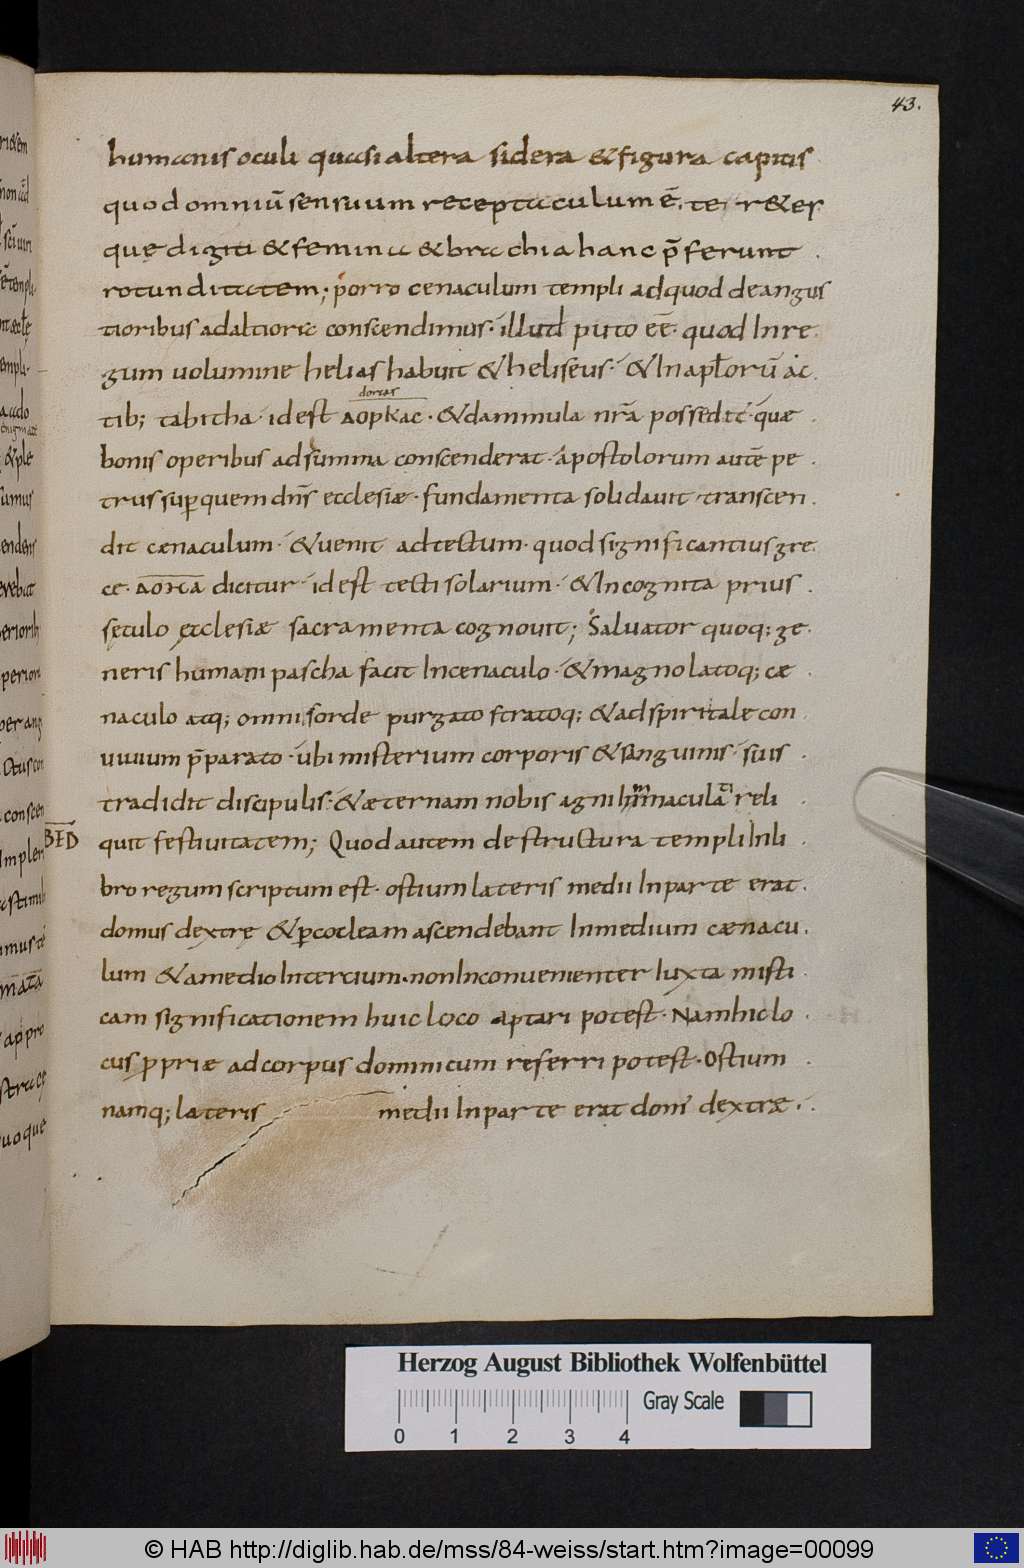 43.
humanis oculi quasi altera sidera & figura capitis
quod omniū sensuum receptaculum ē. te r&es
que digiti & femina & brachia hanc p̄ferunt
rotunditatem; porro cenaculum templi ad quod de angus
tioribus ad altiora conscendimus. illud puto eē. quod In re
gum uolumine helias habuit & heliseus. & In apłorū ac
dorcas
tib; tabitha. id est ΔΟΡΚΑC. & dammula nr̄a possedit. quae
bonis operibus ad summa conscenderat. apostolorum autē pe
trus super quem dn̄s ecclesiae. fundamenta solidauit. transcen
dit caenaculum. & uenit ad tectum. quod significantius gre
ce. ΔΟΜΑ dicitur. id est tecti solarium. & Incognita prius
sętulo ęcclesiae sacramenta cognouit; Saluator quoq; ge
neris humani pascha facit In cenaculo. & magno latoq; cae
naculo atq; omni sorde purgato stratoq; & ad spiritale con
uiuium p̄parato. ubi misterium corporis & sanguinis suis
tradidit discipulis. & aeternam nobis agni Immaculati reli
BED quit festiuitatem; Quod autem de structura templi In li
bro regum scriptum est. ostium lateris medii In parte erat
domus dextrę & per cocleam ascendebant In medium caenacu
lum & a medio In tercium. non Inconuenienter Iuxta misti
cam significationem huic loco aptari potest. Nam hic lo
cus propriae ad corpus dominicum referri potest. Ostium
namq; lateris medii In parte erat dom' dextrae.
Herzog August Bibliothek Wolfenbüttel
Gray Scale
0 1 2 3 4
© HAB http://diglib.hab.de/mss/84-weiss/start.htm?image=00099